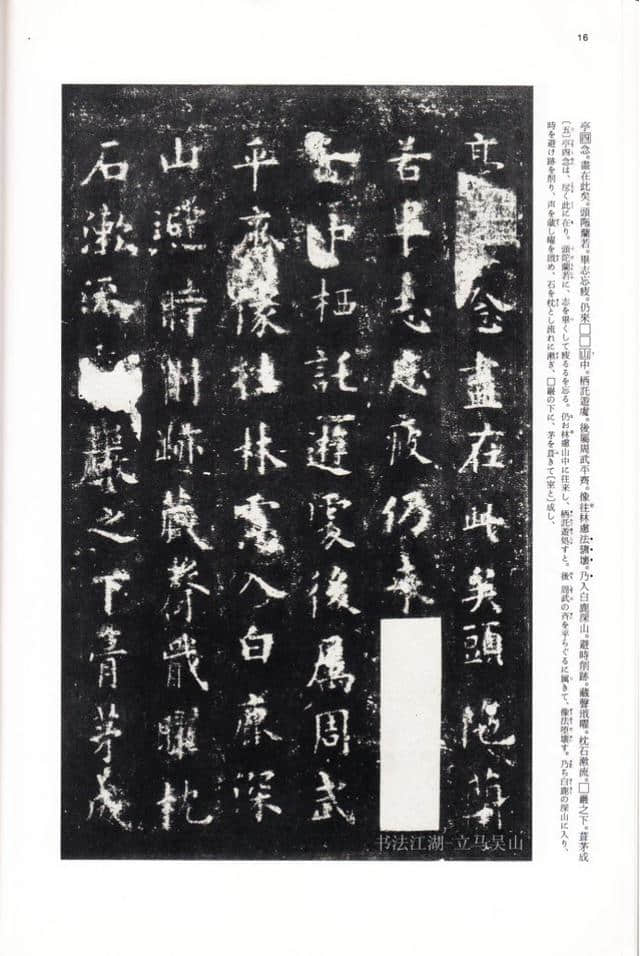 16
亭四念。盡在此矣。頭陁蘭若。畢志忘疲。仍來□□山中。栖託遊處。後屬周武平齊。像往林慮法隳壞。乃入白鹿深山。避時削跡。藏聲戢曜。枕石漱流。□巖之下。葺茅成
〔五〕亭四念は、尽く此に在り。頭陀蘭若に、志を畢くして疲るるを忘る。仍お林慮山中に往来し、栖託遊処すと。後 周武の斉を平らぐるに属きて、像法堕壊す。乃ち白鹿の深山に入り、
時を避け跡を削り、声を蔵し曜を戢め、石を枕とし流れに漱ぎ、□巖の下に、茅を葺きて〔室と〕成し、
亭念盡在此矣頭陁蘭
若畢志忘疲仍来
山中栖託遊處後屬周武
平齊像往林慮入白鹿深
山避時削跡藏聲戢曜枕
石漱流巖之下葺茅成
书法江湖-立马吴山